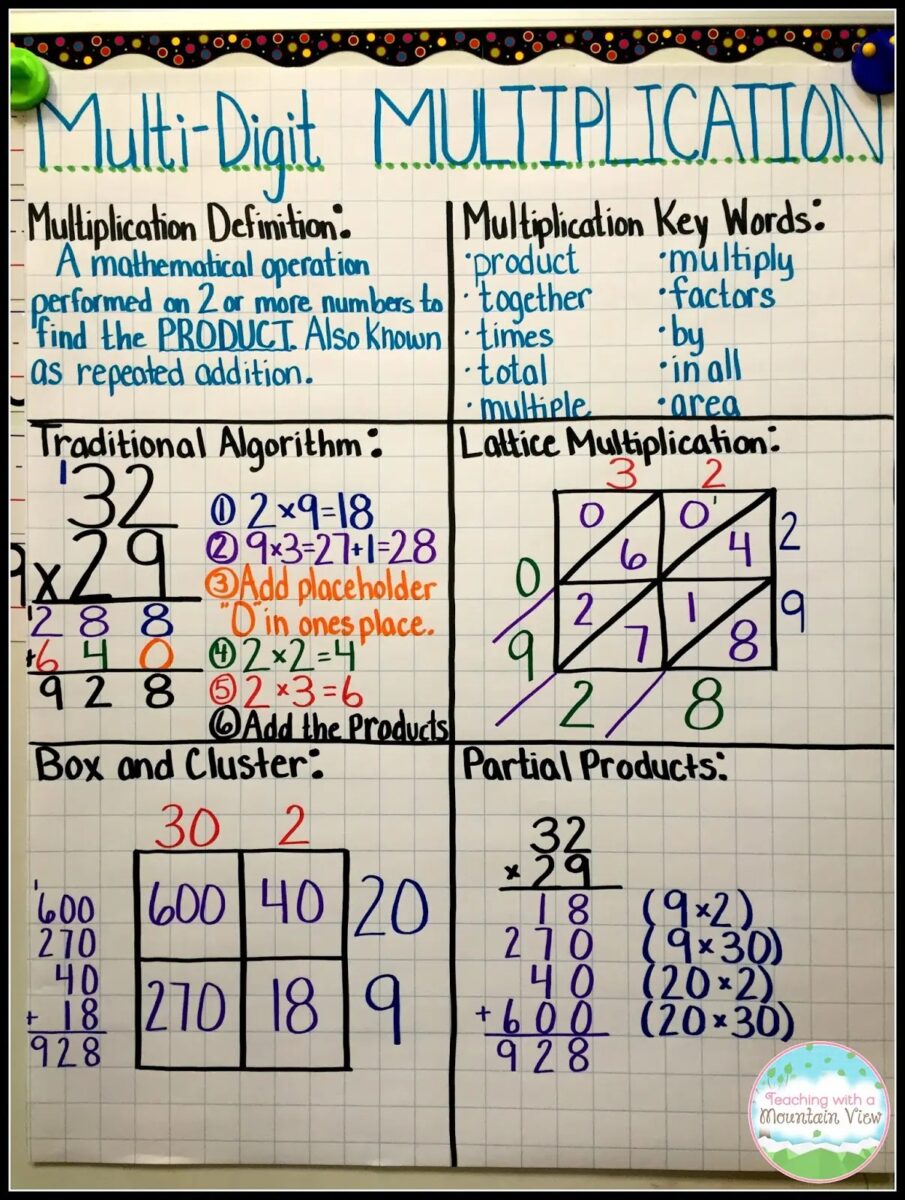 Multi-Digit MULTIPLICATION
Multiplication Definition:
A mathematical operation
performed on 2 or more numbers to
find the PRODUCT. Also known
as repeated addition.
Multiplication Key Words:
·product ·multiply
·together ·factors
·times ·by
·total ·in all
·multiple ·area
Traditional Algorithm:
1
32
x29
1
288
+640
928
① 2×9=18
② 9×3=27+1=28
③ Add placeholder
"0" in ones place.
④ 2×2=4
⑤ 2×3=6
⑥ Add the Products
Lattice Multiplication:
3 2
0 0 1 2
6 4
0
2 1 9
9 7 8
2 8
Box and Cluster:
30 2
600 40 20
270 18 9
1
600
270
40
+ 18
928
Partial Products:
32
×29
18 (9×2)
270 (9×30)
40 (20×2)
+600 (20×30)
928
Teaching with a
Mountain View